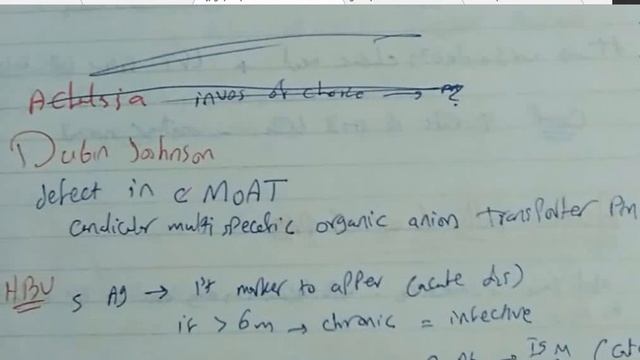 invos of choice → ?
Dubin Johnson
defect in c MOAT
multi specific organic anion transporter
HBV s Ag → 1st marker to apper (acute dis)
if > 6m → chronic = infective